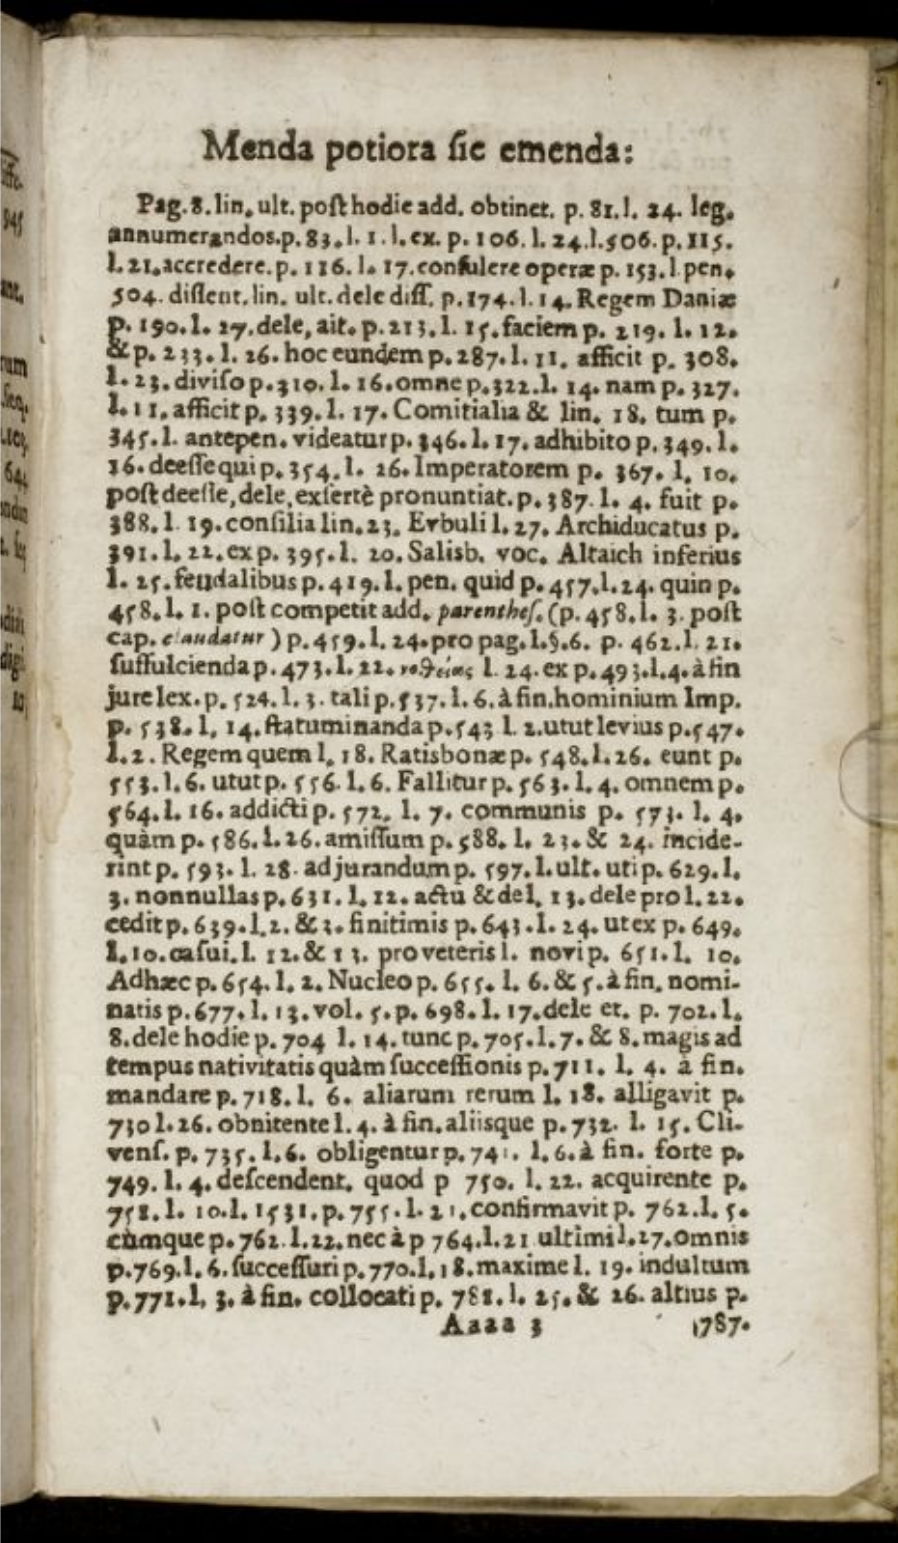 Menda potiora ſic emenda:
Pag. 8. lin. ult. poſt hodie add. obtinet. p. 81. l. 24. leg.
annumerandos. p. 83. l. 1. l. ex. p. 106. l. 24. l. 506. p. 115.
l. 21. accredere. p. 116. l. 17. conſulere operæ p. 153. l pen.
504. diſſent. lin. ult. dele diſſ. p. 174. l. 14. Regem Daniæ
p. 190. l. 27. dele, ait. p. 213. l. 15. faciem p. 219. l. 12.
& p. 233. l. 26. hoc eundem p. 287. l. 11. afficit p. 308.
l. 23. diviſo p. 310. l. 16. omne p. 322. l. 14. nam p. 327.
l. 11. afficit p. 339. l. 17. Comitialia & lin. 18. tum p.
345. l. antepen. videatur p. 346. l. 17. adhibito p. 349. l.
16. deeſſe qui p. 354. l. 26. Imperatorem p. 367. l. 10.
poſt deeſſe, dele, exſertè pronuntiat. p. 387. l. 4. fuit p.
388. l. 19. conſilia lin. 23. Erbuli l. 27. Archiducatus p.
391. l. 22. ex p. 395. l. 20. Salisb. voc. Altaich inferius
l. 25. feudalibus p. 419. l. pen. quid p. 457. l. 24. quin p.
458. l. 1. poſt competit add. parentheſ. (p. 458. l. 3. poſt
cap. claudatur ) p. 459. l. 24. pro pag. l. §. 6. p. 462. l. 21.
ſuffulcienda p. 473. l. 22. l. 24. ex p. 493. l. 4. à fin
jure lex. p. 524. l. 3. tali p. 537. l. 6. à fin. hominium Imp.
p. 538. l. 14. ſtatuminanda p. 543 l. 2. utut levius p. 547.
l. 2. Regem quem l. 18. Ratisbonæ p. 548. l. 26. eunt p.
553. l. 6. utut p. 556. l. 6. Fallitur p. 563. l. 4. omnem p.
564. l. 16. addicti p. 572. l. 7. communis p. 573. l. 4.
quàm p. 586. l. 26. amiſſum p. 588. l. 23. & 24. incide-
rint p. 593. l. 28. adjurandum p. 597. l. ult. uti p. 629. l.
3. nonnullas p. 631. l. 12. actu & del. 13. dele pro l. 22.
cedit p. 639. l. 2. & 3. finitimis p. 643. l. 24. ut ex p. 649.
l. 10. caſui. l. 12. & 13. pro veteris l. novi p. 651. l. 10.
Adhæc p. 654. l. 2. Nucleo p. 655. l. 6. & 5. à fin. nomi-
natis p. 677. l. 13. vol. 5. p. 698. l. 17. dele et. p. 702. l.
8. dele hodie p. 704 l. 14. tunc p. 705. l. 7. & 8. magis ad
tempus nativitatis quàm ſucceſſionis p. 711. l. 4. à fin.
mandare p. 718. l. 6. aliarum rerum l. 18. alligavit p.
730 l. 26. obnitente l. 4. à fin. aliisque p. 732. l. 15. Cli-
venſ. p. 735. l. 6. obligentur p. 741. l. 6. à fin. forte p.
749. l. 4. deſcendent. quod p 750. l. 22. acquirente p.
758. l. 10. l. 1531. p. 755. l. 21. confirmavit p. 762. l. 5.
cùmque p. 762. l. 22. nec à p 764. l. 21 ultimi l. 27. omnis
p. 769. l. 6. ſucceſſuri p. 770. l. 18. maxime l. 19. indultum
p. 771. l. 3. à fin. collocati p. 781. l. 25. & 26. altius p.
Aaaa 3 787.